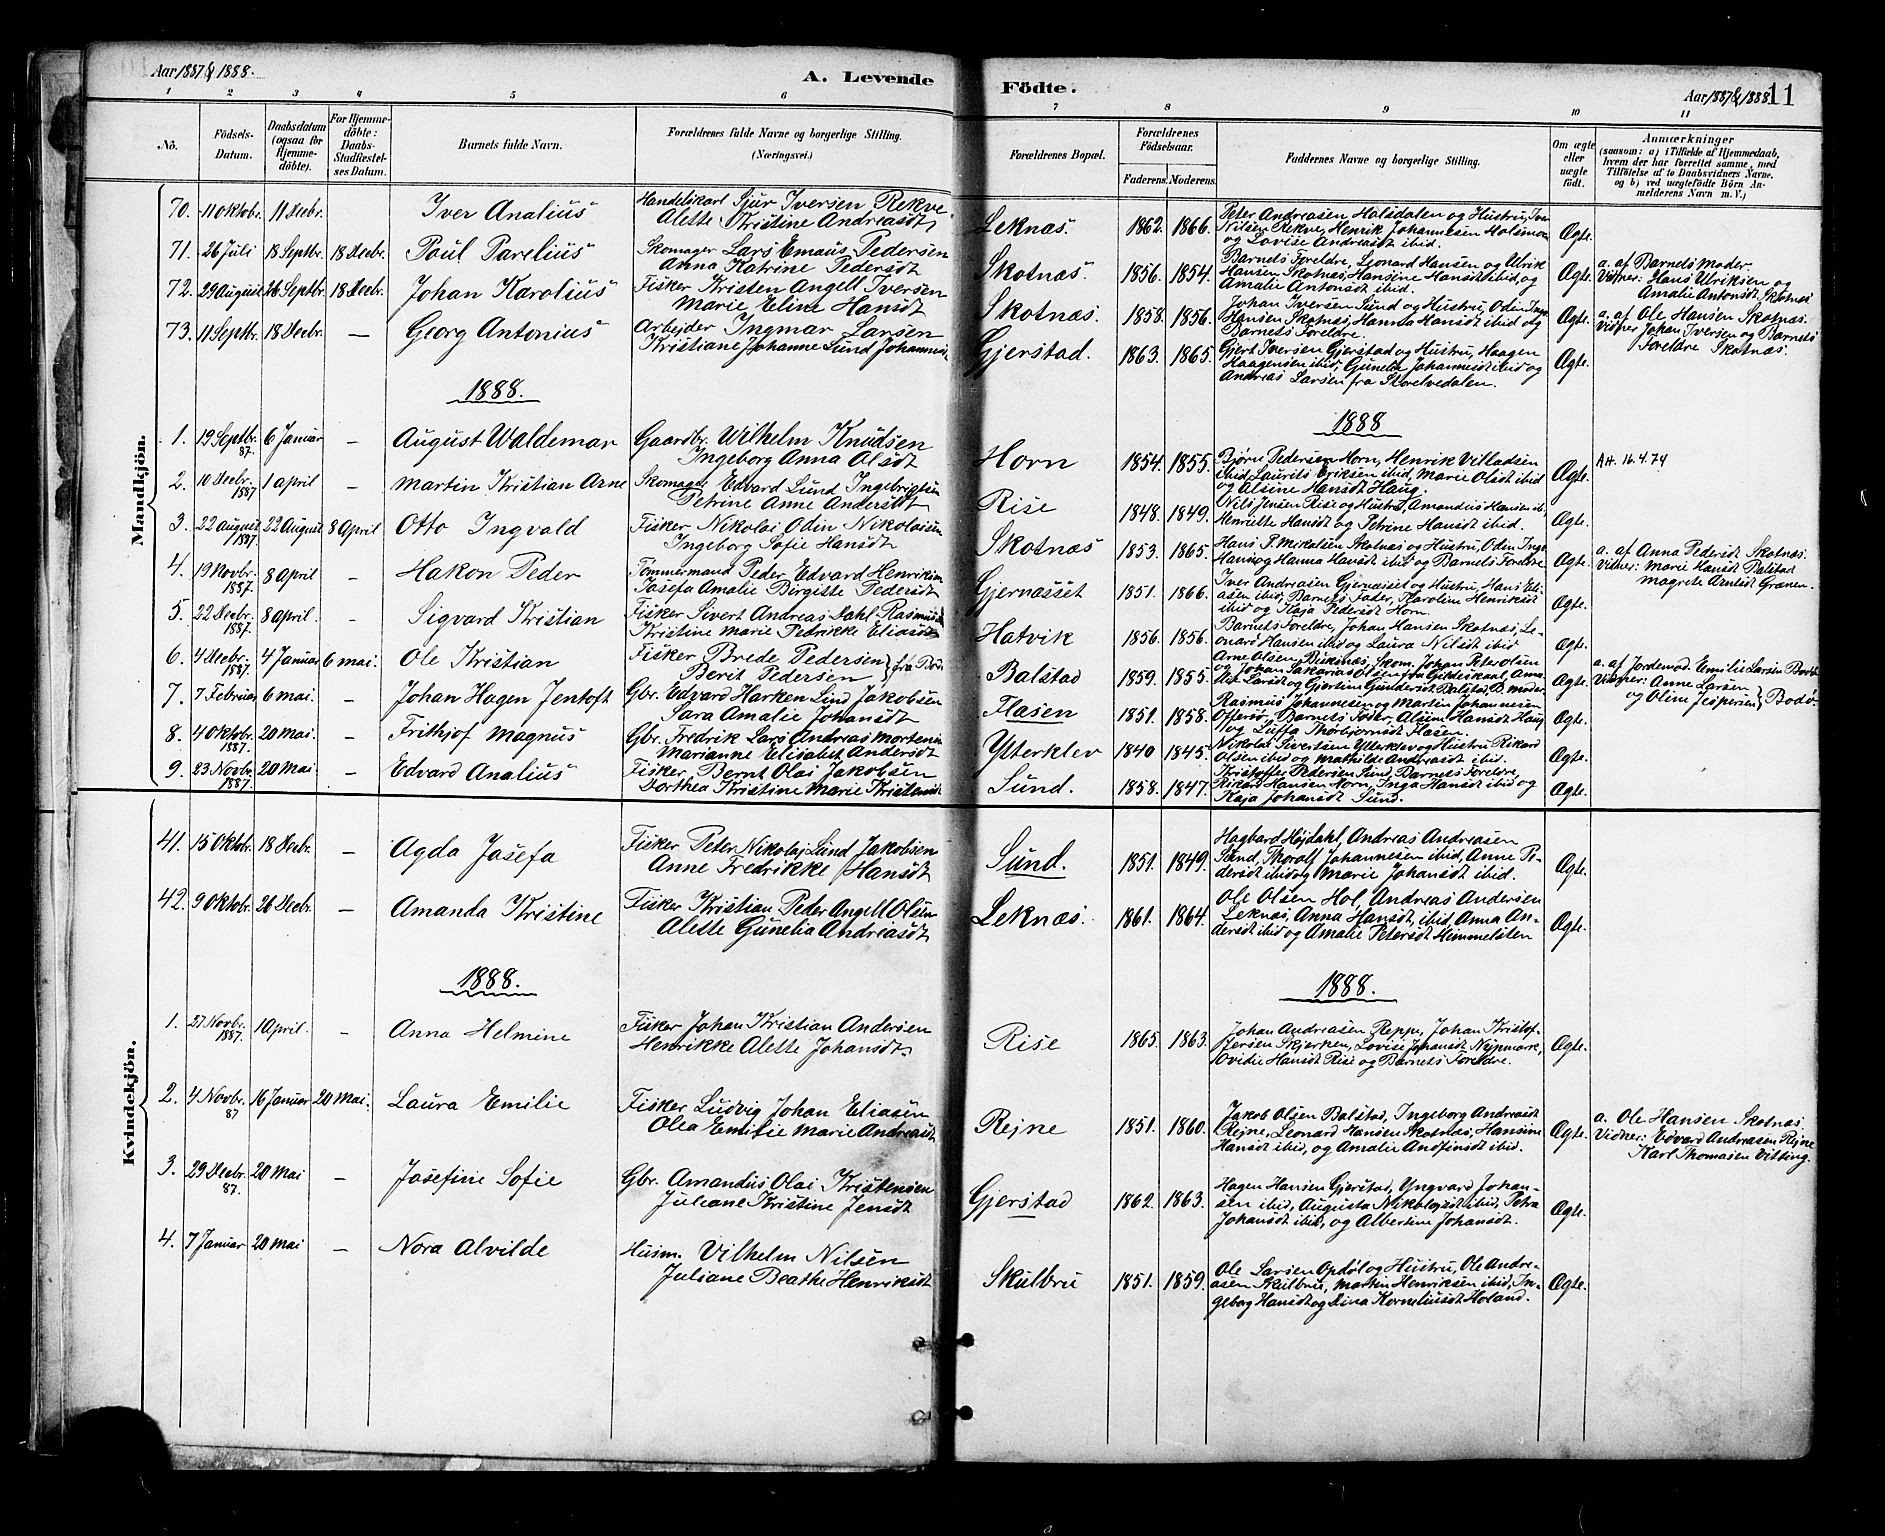 Aar 1887 & 1888.
A. Levende
Födte.
Aar 1887 & 1888.
11
1 2 3 4 5 6 7 8 9 10 11
No.
Födsels-
Datum.
Daabsdatum
(ogsaa for
Hjemme-
döbte).
For Hjemme-
döbte:
Daabs-
Stadfæstel-
ses Datum.
Barnets fulde Navn.
Forældrenes fulde Navne og borgerlige Stilling.
(Næringsvei.)
Forældrenes Bopæl.
Forældrenes
Födselsaar.
Faderens. Moderens.
Faddernes Navne og borgerlige Stilling.
Om ægte
eller
uægte
födt.
Anmærkninger
(saasom: a) i Tilfælde af Hjemmedaab,
hvem der har forrettet samme, med
Tilföielse af to Daabsvidners Navne,
og b) ved uægtefödte Börn An-
melderens Navn m. V.)
Mandkjön.
70. 11 Oktobr. 11 Decbr. Iver Analius Handelskarl Sjur Iversen Rekve
Alette Kristine Andreasdt
Leknæs. 1862. 1866. Peter Andreasen Halsdalen og Hustru,
Nilsen Rekve, Henrik Johannesen
og Lovise Andreasdt ibid. Ægte.
71. 26 Juli 18 Septbr. 18 Decbr. Paul Parelius Skomager Lars Emaus Pedersen
Anna Katrine Pedersdt
Skotnæs. 1856. 1854. Barnets Foreldre, Leonard Hansen og Ulrik
Hansen Skotnæs, Hansine Hansdt ibid, og
Amalie Antonsdt ibid. Ægte. a. af Barnets Moder.
Vidner: Hans Ulriksen og
Amalie Antonsdt, Skotnæs
72. 29 August 26 Septbr. 18 Decbr. Johan Karolius Fisker Kristen Angell Iversen
Marie Eline Hansdt
Skotnæs. 1858. 1856. Johan Iversen Sund og Hustru, Odin Ingv.
Hansen Skotnæs, Hanna Hansdt ibid og
Barnets Foreldre. Ægte. a. af Ole Hansen Skotnæs.
Vidner Johan Iversen og Barnets
Foreldre Skotnæs.
73. 11 Septbr. 18 Decbr. — Georg Antonius Arbeider Ingmar Larsen
Kristiane Johanne Lund
Gjerstad. 1863. 1865. Gjert Iversen Gjerstad og Hustru, Haagen
Haagensen ibid, Gunelia Johannesdt ibid og
Andreas Larsen fra Storelvedalen. Ægte.
1888. 1888
1. 19 Septbr. 87. 6 Januar — August Waldemar Gaardbr. Wilhelm Knudsen
Ingeborg Anna Olsdt
Horn 1854. 1855. Bjørn Pedersen Horn, Henrik Villadsen
ibid, Laurits Eriksen ibid, Marie Olsdt ibid
og Alsine Hansdt Haug. Ægte. Att. 16.4.74
2. 10 Decbr. 1887 1 april — Martin Kristian Arne Skomager Edvard Lund Ingebrigtsen
Petrine Anne Andersdt
Rise 1848. 1849. Nils Jensen Rise og Hustru, Amandus Hansen ib.
Henriette Hansdt og Petrine Hansdt ibid. Ægte.
3. 22 August 1887 22 August 8 April Otto Ingvald Fisker Nikolai Odin Nikolaisen
Ingeborg Sofie Hansdt
Skotnæs 1853. 1865. Hans P. Mikalsen Skotnæs og Hustru, Odin Ingv.
Hansen og Hanna Hansdt ibid og Barnets Foreldre Ægte. a. af Anna Pedersdt Skotnæs.
Vidner: Marie Hansdt Balstad
Magrete Arntsdt Grænen.
4. 19 Novbr. 1887. 8 april — Hakon Peder Tømmermand Peder Edvard Henriksen
Josefa Amalie Birgitte Pedersdt
Gjernæsset 1851. 1866. Iver Andreasen Gjernæsset og Hustru, Hans Eli-
asen ibid, Barnets Fader, Karoline Henriksdt
ibid og Kaja Pedersdt Horn. Ægte.
5. 22 Decbr. 1887. 8 april. — Sigvard Kristian Fisker Sivert Andreas Dahl Rasmussen
Kristine Marie Pedrikke Eliasdt
Hatvik 1856. 1856. Barnets Foreldre, Johan Hansen Skotnæs, Le-
onard Hansen ibid og Laura Nilsdt ibid Ægte.
6. 4 Decbr. 1887. 4 Januar 6 mai. Ole Kristian Fisker Brede Pedersen
Berit Pedersen } fra Bodø
Balstad 1859. 1855. Arne Olsen Buksnæs, Skom. Johan Peter Olsen
og Johan Sakarias Olsen fra Gildeskaal, Ama-
lie Larsdt og Gjertine Gundersdt Balstad, B. Moder. Ægte. a. af Jordemod. Emilie Larsen Bodø
Vidner: Anne Larsen
og Oline Jespersen } Bodø.
7. 7 Februar 6 mai. — Johan Hagen Jentoft Gbr. Edvard Harken Lind Jakobsen
Sara Amalie Johansdt
Flasen 1851. 1858. Rasmus Johannesen og Martin Johannesen
Offersø, Barnets Fader, Alsine Hansdt Haug
og Luffa Thorbjørnsdt Flasen. Ægte.
8. 4 Oktobr. 1887. 20 mai. — Frithjof Magnus Gbr. Fredrik Lars Andreas Mortensen
Marianne Elisabet Andersdt
Ytterklev 1840 1845. Nikolai Sivertsen Ytterklev og Hustru Rikard
Olsen ibid og Mathilde Andreasdt ibid. Ægte.
9. 23 Novbr. 1887. 20 Mai — Edvard Analius Fisker Bernt Olai Jakobsen
Dorthea Kristine Marie Kristensdt
Sund. 1858. 1847. Kristoffer Pedersen Sund, Barnets Foreldre,
Rikard Hansen Horn, Inga Hansdt ibid og
Kaja Johansdt Sund. Ægte.
Kvindekjön.
41. 15 Oktobr. 18 Decbr. — Agda Josefa Fisker Peter Nikolaj Lund Jakobsen
Anne Fredrikke Hansdt
Sund. 1851. 1849. Hagbard Højdahl, Andreas Andreasen
Sund, Thoralf Johannesen ibid, Anne Pe-
dersdt ibid og Marie Johansdt ibid. Ægte.
42. 9 Oktobr. 26 Decbr. — Amanda Kristine Fisker Kristian Peder Angell Olsen
Alette Gunelia Andreasdt
Leknæs. 1861. 1864. Ole Olsen Hol, Andreas Andersen
Leknæs, Anna Hansdt, ibid, Anna An-
dersdt ibid og Amalie Petersdt Himmelsten Ægte.
1888. 1888.
1. 27 Novbr. 1887. 1 April. — Anna Helmine Fisker Johan Kristian Andersen
Henrikke Alette Johansdt.
Rise 1865. 1863. Johan Andreasen Reppe, Johan Kristof-
fersen Skjerken, Lovise Johansdt Nypmark,
Ovidie Hansdt Rise og Barnets Foreldre. Ægte.
2. 4 Novbr. 87 16 Januar 20 Mai. Laura Emilie Fisker Ludvig Johan Eliasen
Olea Emilie Marie Andreasdt
Rejne 1851. 1860. Jakob Olsen Balstad, Ingeborg Andreasdt
Rejne, Leonard Hansen Skotnæs, Hansine
Hansdt ibid, og Amalie Andfinsdt ibid. Ægte. a. Ole Hansen Skotnæs.
Vidner: Edvard Andreasen Rejne
Karl Thomasen Vitting.
3. 29 Decbr. 87. 20 Mai — Josefine Sofie Gbr. Amandus Olai Kristensen
Juliane Kristine Jensdt
Gjerstad 1862. 1863. Hagen Hansen Gjerstad, Yngvard Johan-
sen ibid, Augusta Nikolajsdt ibid, Petra
Johansdt ibid, og Albertine Johansdt. Ægte.
4. 7 Januar 20 Mai — Nora Alvilde Husm. Vilhelm Nilsen
Juliane Beathe Henriksdt
Skulbru 1851. 1859. Ole Larsen Opdøl og Hustru, Ole Andre-
asen Skulbru, Martin Henriksen ibid, In-
geborg Hansdt og Dina Korneliusdt Holand. Ægte.